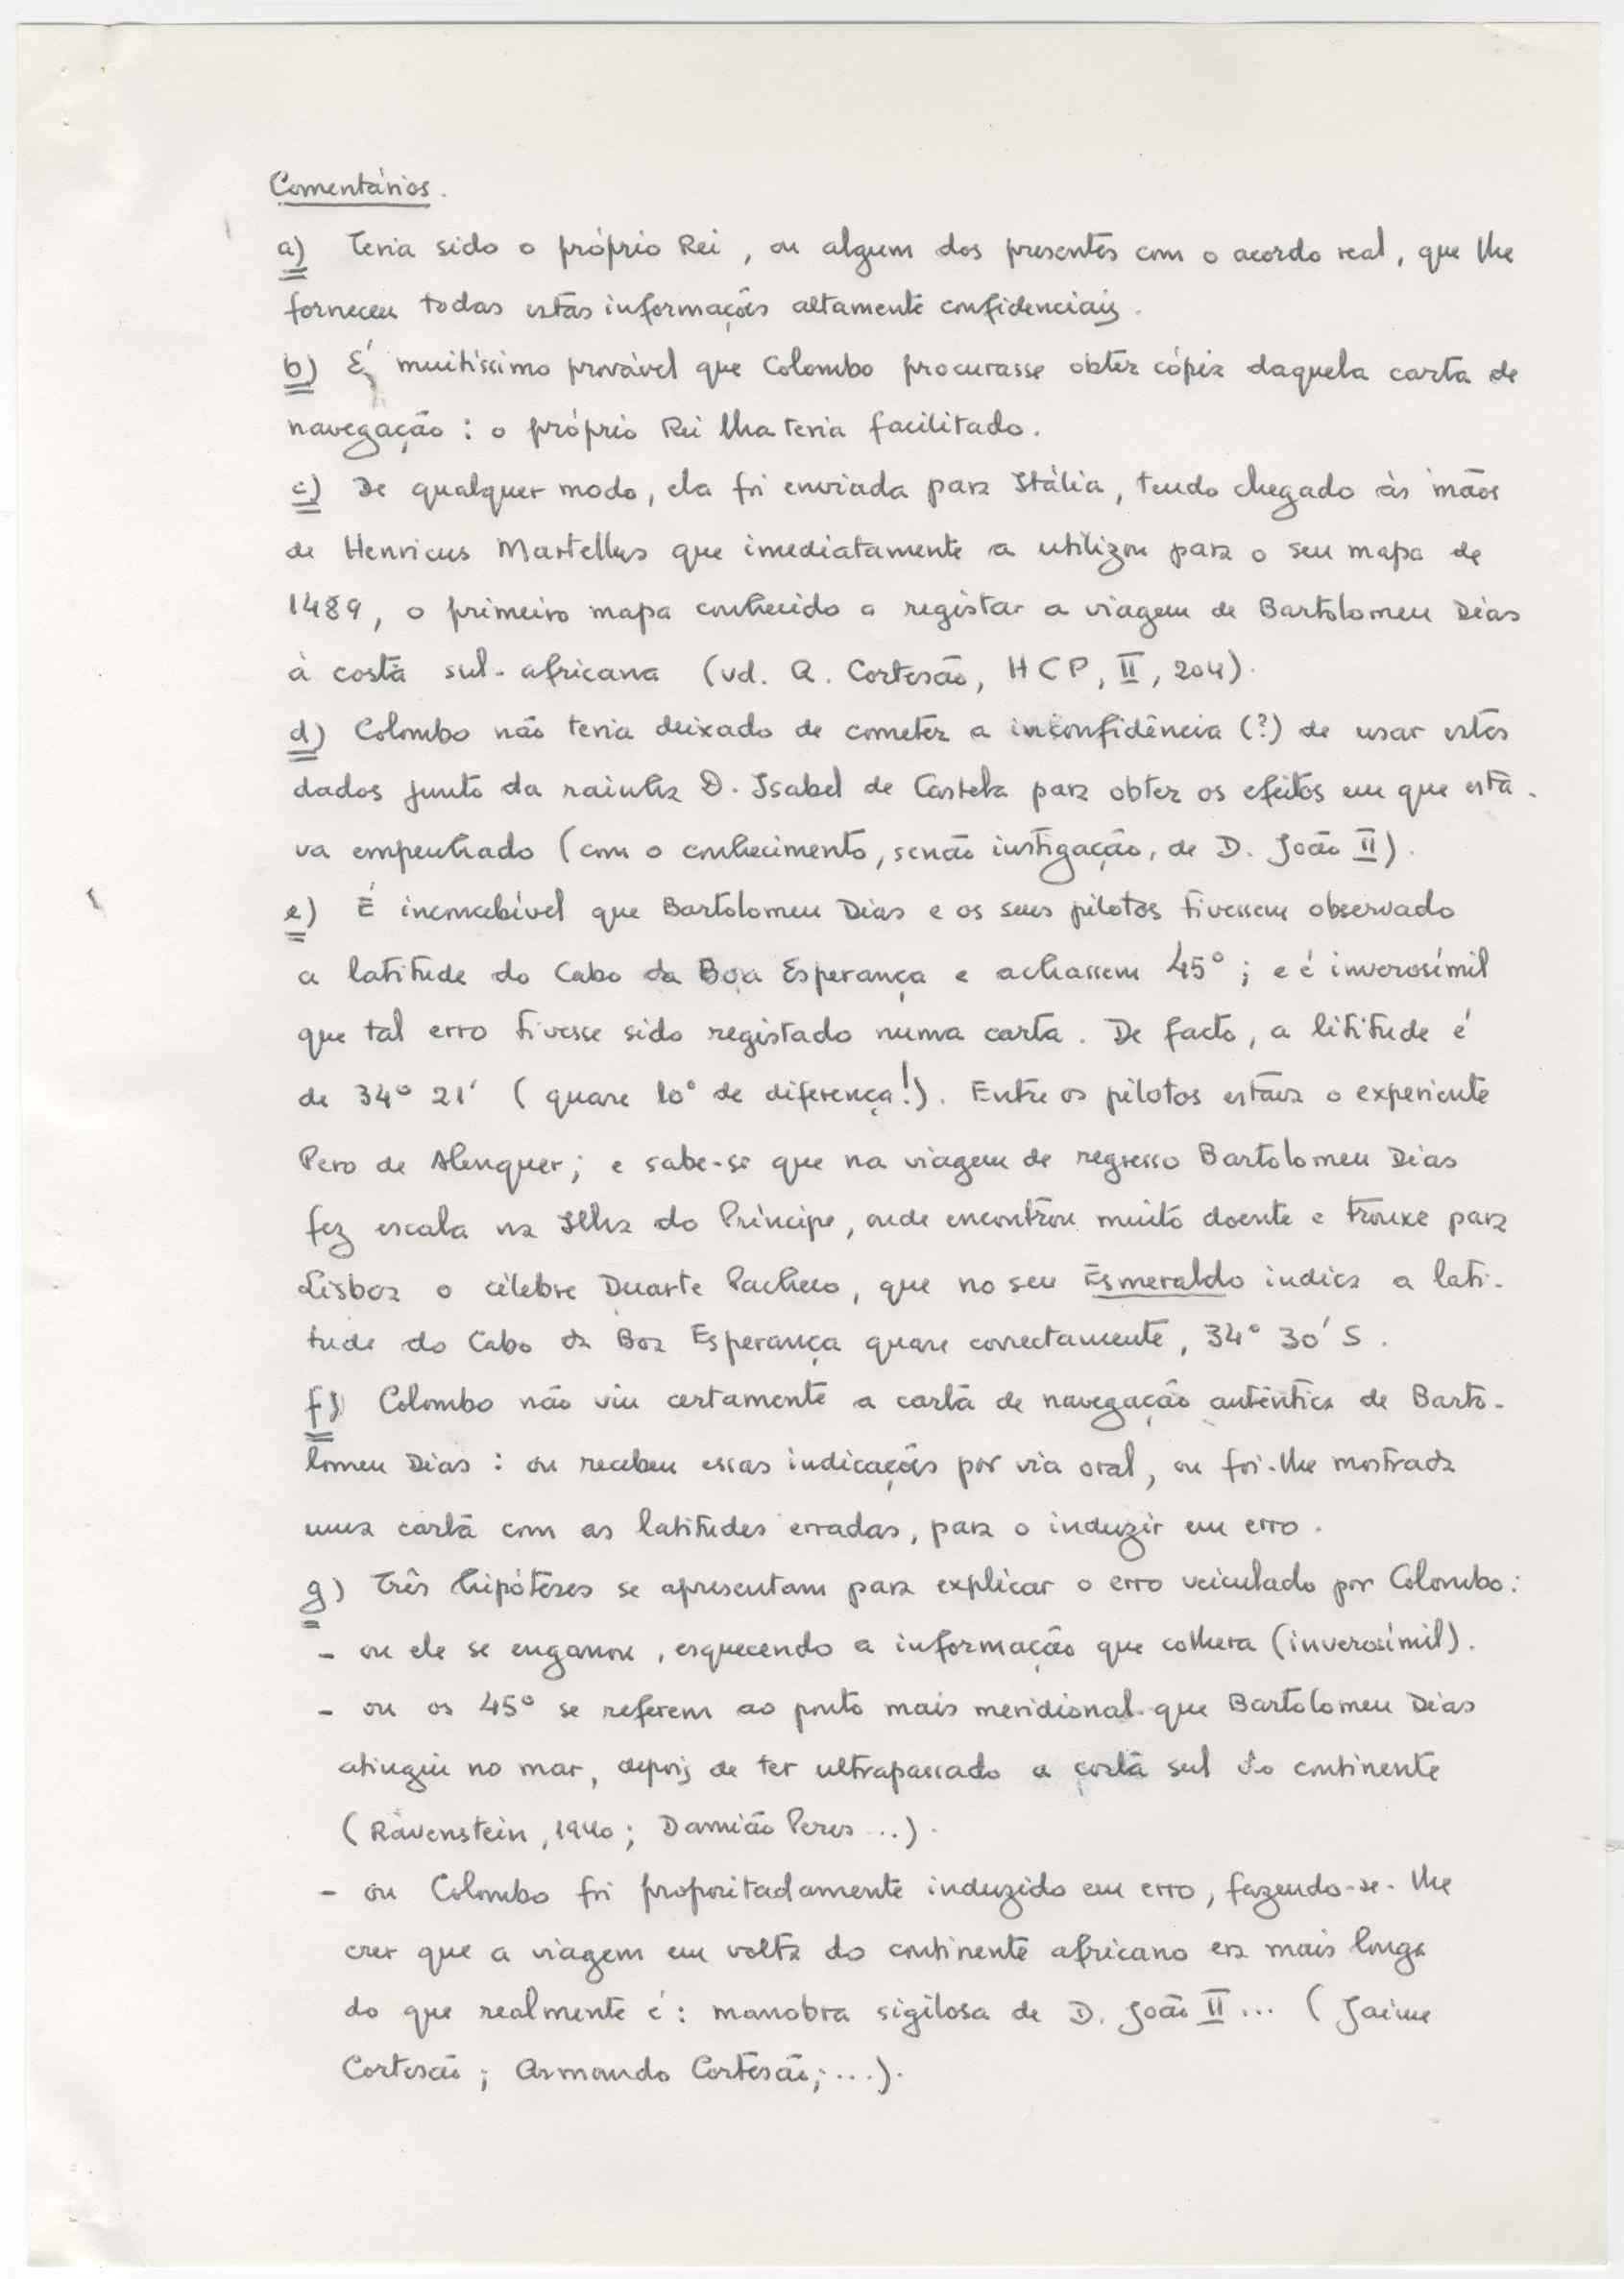 Comentários.
a) Teria sido o próprio Rei, ou algum dos presentes com o acordo real, que lhe
forneceu todas estas informações altamente confidenciais.
b) É muitíssimo provável que Colombo procurasse obter cópia daquela carta de
navegação : o próprio Rei lha teria facilitado.
c) De qualquer modo, ela foi enviada para Itália, tendo chegado às mãos
de Henricus Martellus que imediatamente a utilizou para o seu mapa de
1489, o primeiro mapa conhecido a registar a viagem de Bartolomeu Dias
à costa sul-africana (vd. A. Cortesão, HCP, II, 204).
d) Colombo não teria deixado de cometer a inconfidência (?) de usar estes
dados junto da rainha D. Isabel de Castela para obter os efeitos em que esta-
va empenhado (com o conhecimento, senão instigação, de D. João II).
e) É inconcebível que Bartolomeu Dias e os seus pilotos tivessem observado
a latitude do Cabo da Boa Esperança e achassem 45° ; e é inverosímil
que tal erro tivesse sido registado numa carta. De facto, a lititude é
de 34° 21' (quase 10° de diferença!). Entre os pilotos estava o experiente
Pero de Alenquer; e sabe-se que na viagem de regresso Bartolomeu Dias
fez escala na Ilha do Príncipe, onde encontrou muito doente e trouxe para
Lisboa o célebre Duarte Pacheco, que no seu Esmeraldo indica a lati-
tude do Cabo da Boa Esperança quase correctamente, 34° 30' S.
f) Colombo não viu certamente a carta de navegação autêntica de Barto-
lomeu Dias : ou recebeu essas indicações por via oral, ou foi-lhe mostrada
uma carta com as latitudes erradas, para o induzir em erro.
g) Três hipóteses se apresentam para explicar o erro veiculado por Colombo:
- ou ele se enganou, esquecendo a informação que colhera (inverosímil).
- ou os 45° se referem ao ponto mais meridional que Bartolomeu Dias
atingiu no mar, depois de ter ultrapassado a costa sul do continente
(Ravenstein, 1940; Damião Peres...).
- ou Colombo foi propositadamente induzido em erro, fazendo-se-lhe
crer que a viagem em volta do continente africano era mais longa
do que realmente é: manobra sigilosa de D. João II... (Jaime
Cortesão ; Armando Cortesão;...).